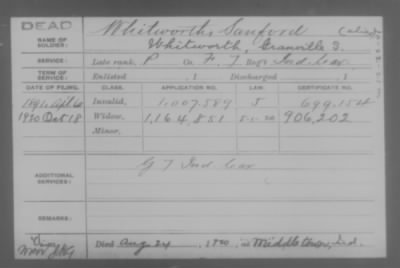 DEAD
NAME OF SOLDIER:
Whitworth, Sanford (alias)
Whitworth, Granville S.
SERVICE:
Late rank, P Co. F, 7 Reg't Ind. Cav
TERM OF SERVICE:
Enlisted , 1 Discharged , 1
DATE OF FILING. CLASS. APPLICATION NO. LAW. CERTIFICATE NO.
Invalid, 1,007,589 J 699,154
1920 Oct 18 Widow, 1,164,851 906,202
Minor,
ADDITIONAL SERVICES:
G 7 Ind Cav
REMARKS:
Died Aug 24, 1920, at Ind.